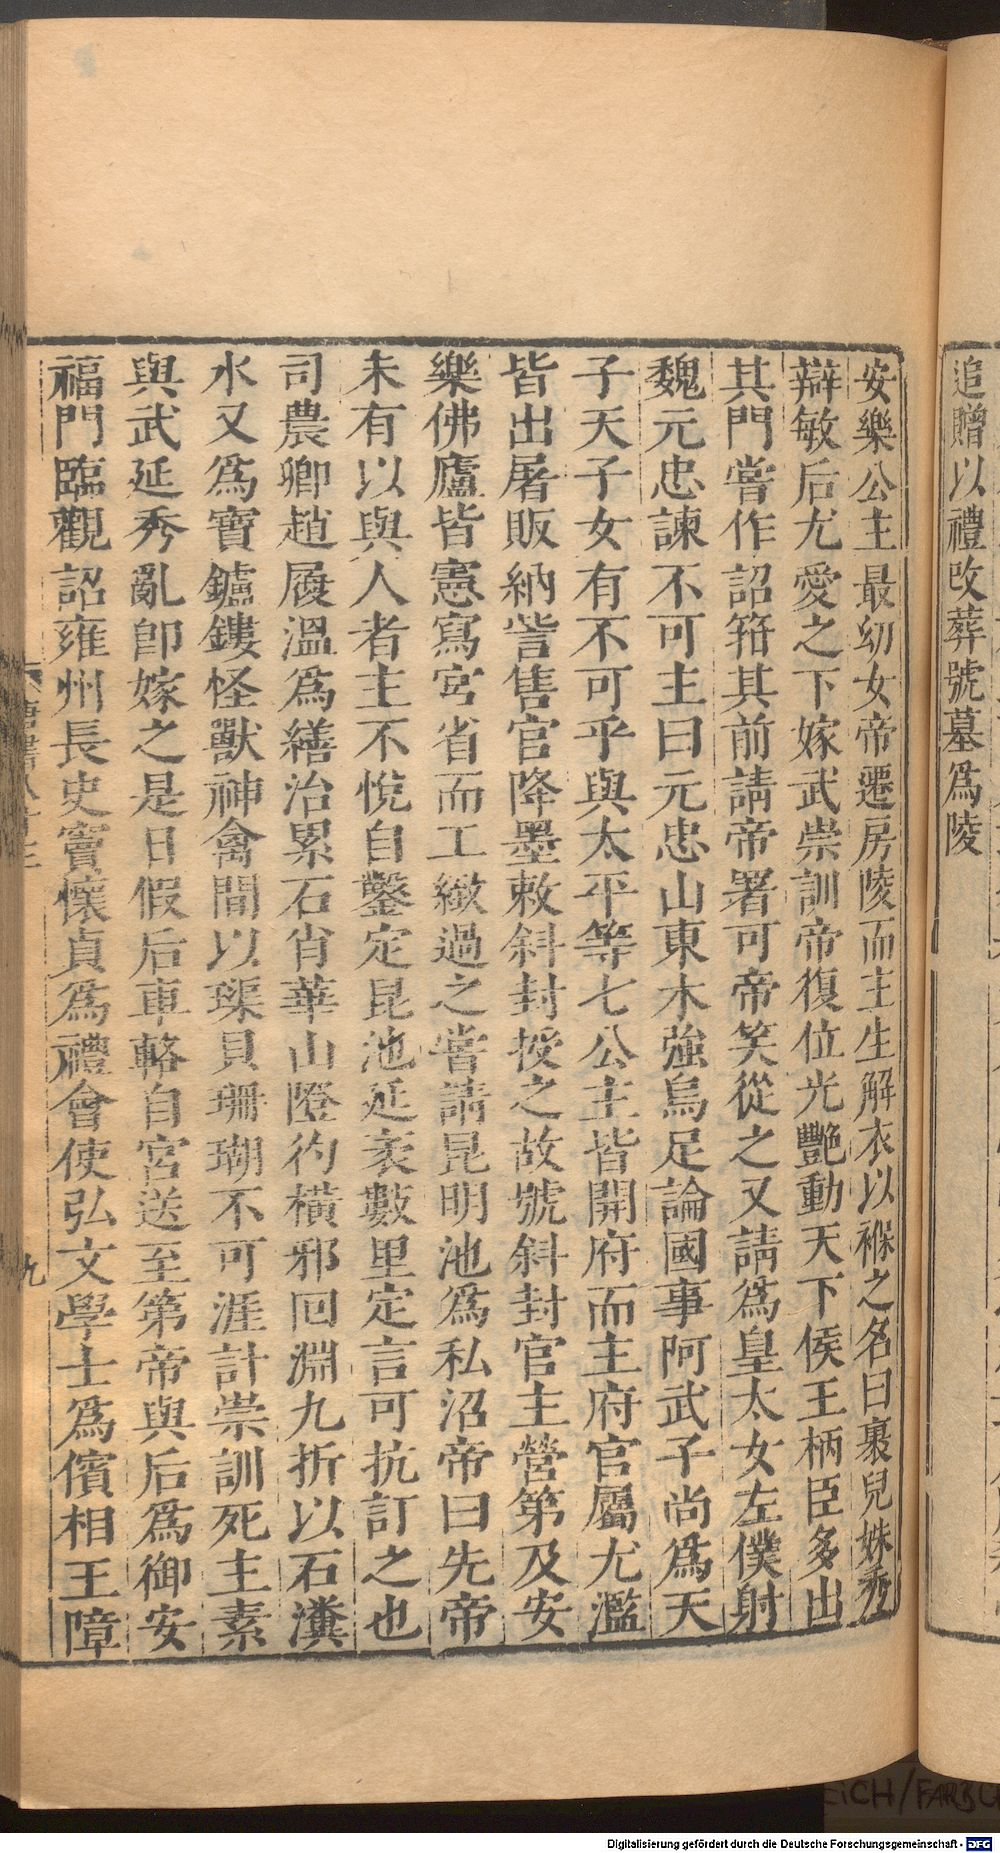 追贈以禮改葬號墓爲陵
安樂公主最幼女帝遷房陵而主生解衣以褓之名曰裹兒姝秀
辯敏后尤愛之下嫁武崇訓帝復位光艷動天下侯王柄臣多出
其門嘗作詔箝其前請帝署可帝笑從之又請爲皇太女左僕射
魏元忠諫不可主曰元忠山東木強烏足論國事阿武子尚爲天
子天子女有不可乎與太平等七公主皆開府而主府官屬尤濫
皆出屠販納訾售官降墨敕斜封授之故號斜封官主營第及安
樂佛廬皆憲寫宮省而工緻過之嘗請昆明池爲私沼帝曰先帝
未有以與人者主不悅自鑿定昆池延袤數里定言可抗訂之也
司農卿趙履溫爲繕治累石肖華山隥彴橫邪回淵九折以石瀵
水又爲寶鑪鏤怪獸神禽間以璖貝珊瑚不可涯計崇訓死主素
與武延秀亂卽嫁之是日假后車輅自宮送至第帝與后爲御安
福門臨觀詔雍州長史竇懷貞爲禮會使弘文學士爲儐相王障
九
Digitalisierung gefördert durch die Deutsche Forschungsgemeinschaft - DFG